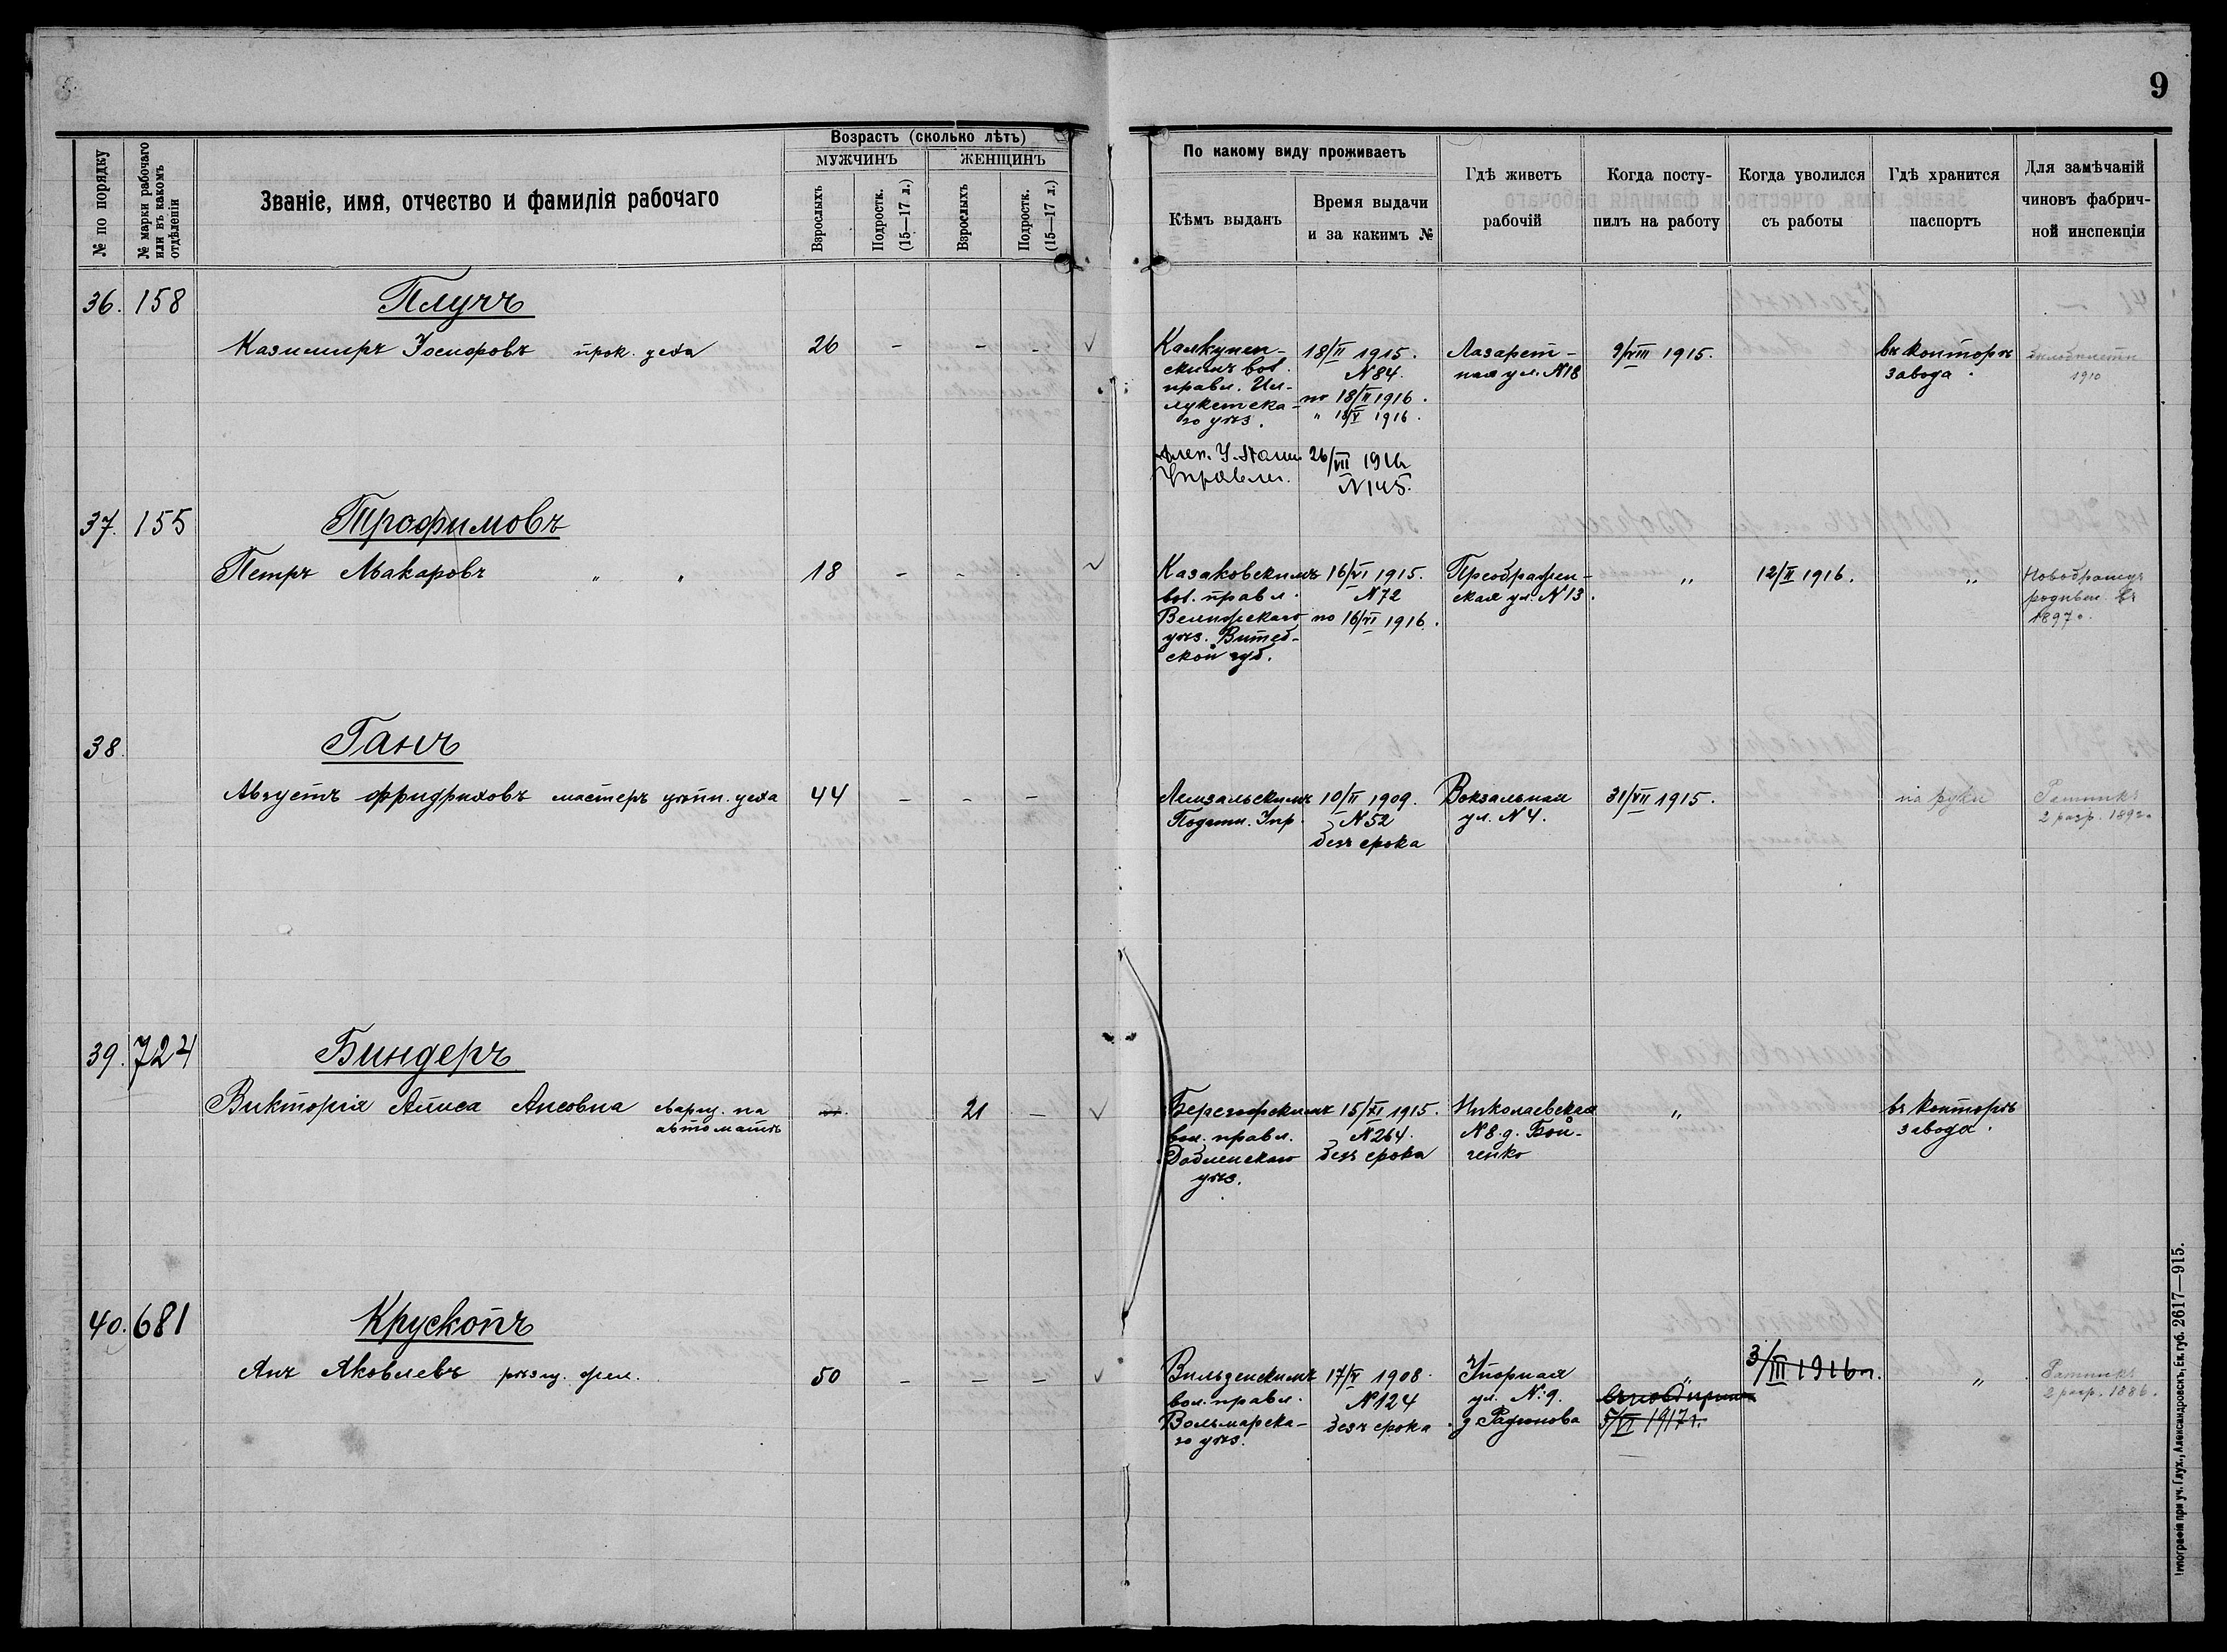 9
№ по порядку
№ марки рабочаго или въ какомъ отдѣленіи
Званіе, имя, отчество и фамилія рабочаго
Возрастъ (сколько лѣтъ)
МУЖЧИНЪ
ЖЕНЩИНЪ
Взрослыхъ
Подростк. (15—17 л.)
Взрослыхъ
Подростк. (15—17 л.)
По какому виду проживаетъ
Кѣмъ выданъ
Время выдачи
и за какимъ №
Гдѣ живетъ
рабочій
Когда посту-
пилъ на работу
Когда уволился
съ работы
Гдѣ хранится
паспортъ
Для замѣчаній
чиновъ фабрич-
ной инспекціи
36. 158
Плучъ
Казимиръ Іосифовъ прок. цеха
26 – – –
Калкунен-
скимъ вол.
правл. Ил-
лукстска-
го уѣз.
18/II 1915.
№ 84.
по 18/II 1916.
" 18/V 1916.
26/VII 1916
№ 145.
Лазарет-
ная ул. № 18
9/VIII 1915.
въ конторѣ
завода.
1910
37. 155
Трофимовъ
Петръ Макаровъ " "
18 – –
Казаковскимъ
вол. правл.
уѣз. Витеб-
ской губ.
16/VI 1915.
№ 72
по 16/VI 1916.
Преображен-
ская ул. № 13.
"
12/II 1916.
"
Новобранецъ
въ
1897 г.
38.
Ганъ
Августъ Фридриховъ мастеръ цѣпн. цеха
44 – – –
Лемзальскимъ
Податн. Упр.
10/II 1909.
№ 52
безъ срока
Вокзальная
ул. № 4.
31/VII 1915.
на руки
Ратникъ
2 разр. 1892 г.
39. 724
Биндеръ
Викторія Алиса Ансовна сварщ. на
автоматѣ
21 –
вол. правл.
Добленскаго
уѣз.
15/XI 1915.
№ 264.
безъ срока
Николаевская
№ 8. д. Бой-
ченко
"
въ конторѣ
завода.
40. 681
Крускопъ
Анъ Яковлевъ рѣзч. жел.
50 – – –
Вильденскимъ
вол. правл.
Вольмарска-
го уѣз.
17/V 1908.
№ 124
безъ срока
Упорная
ул. № 9.
"
5/VI 1917 г.
3/III 1916 г.
"
Ратникъ
2 разр. 1886.
Типографія при уч. Глух., Александровскъ, Ек. губ. 2617—915.